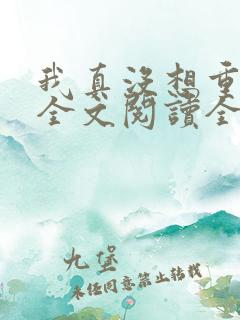 我真没想重
全文閱讀全
九堡
未经同意禁止转载